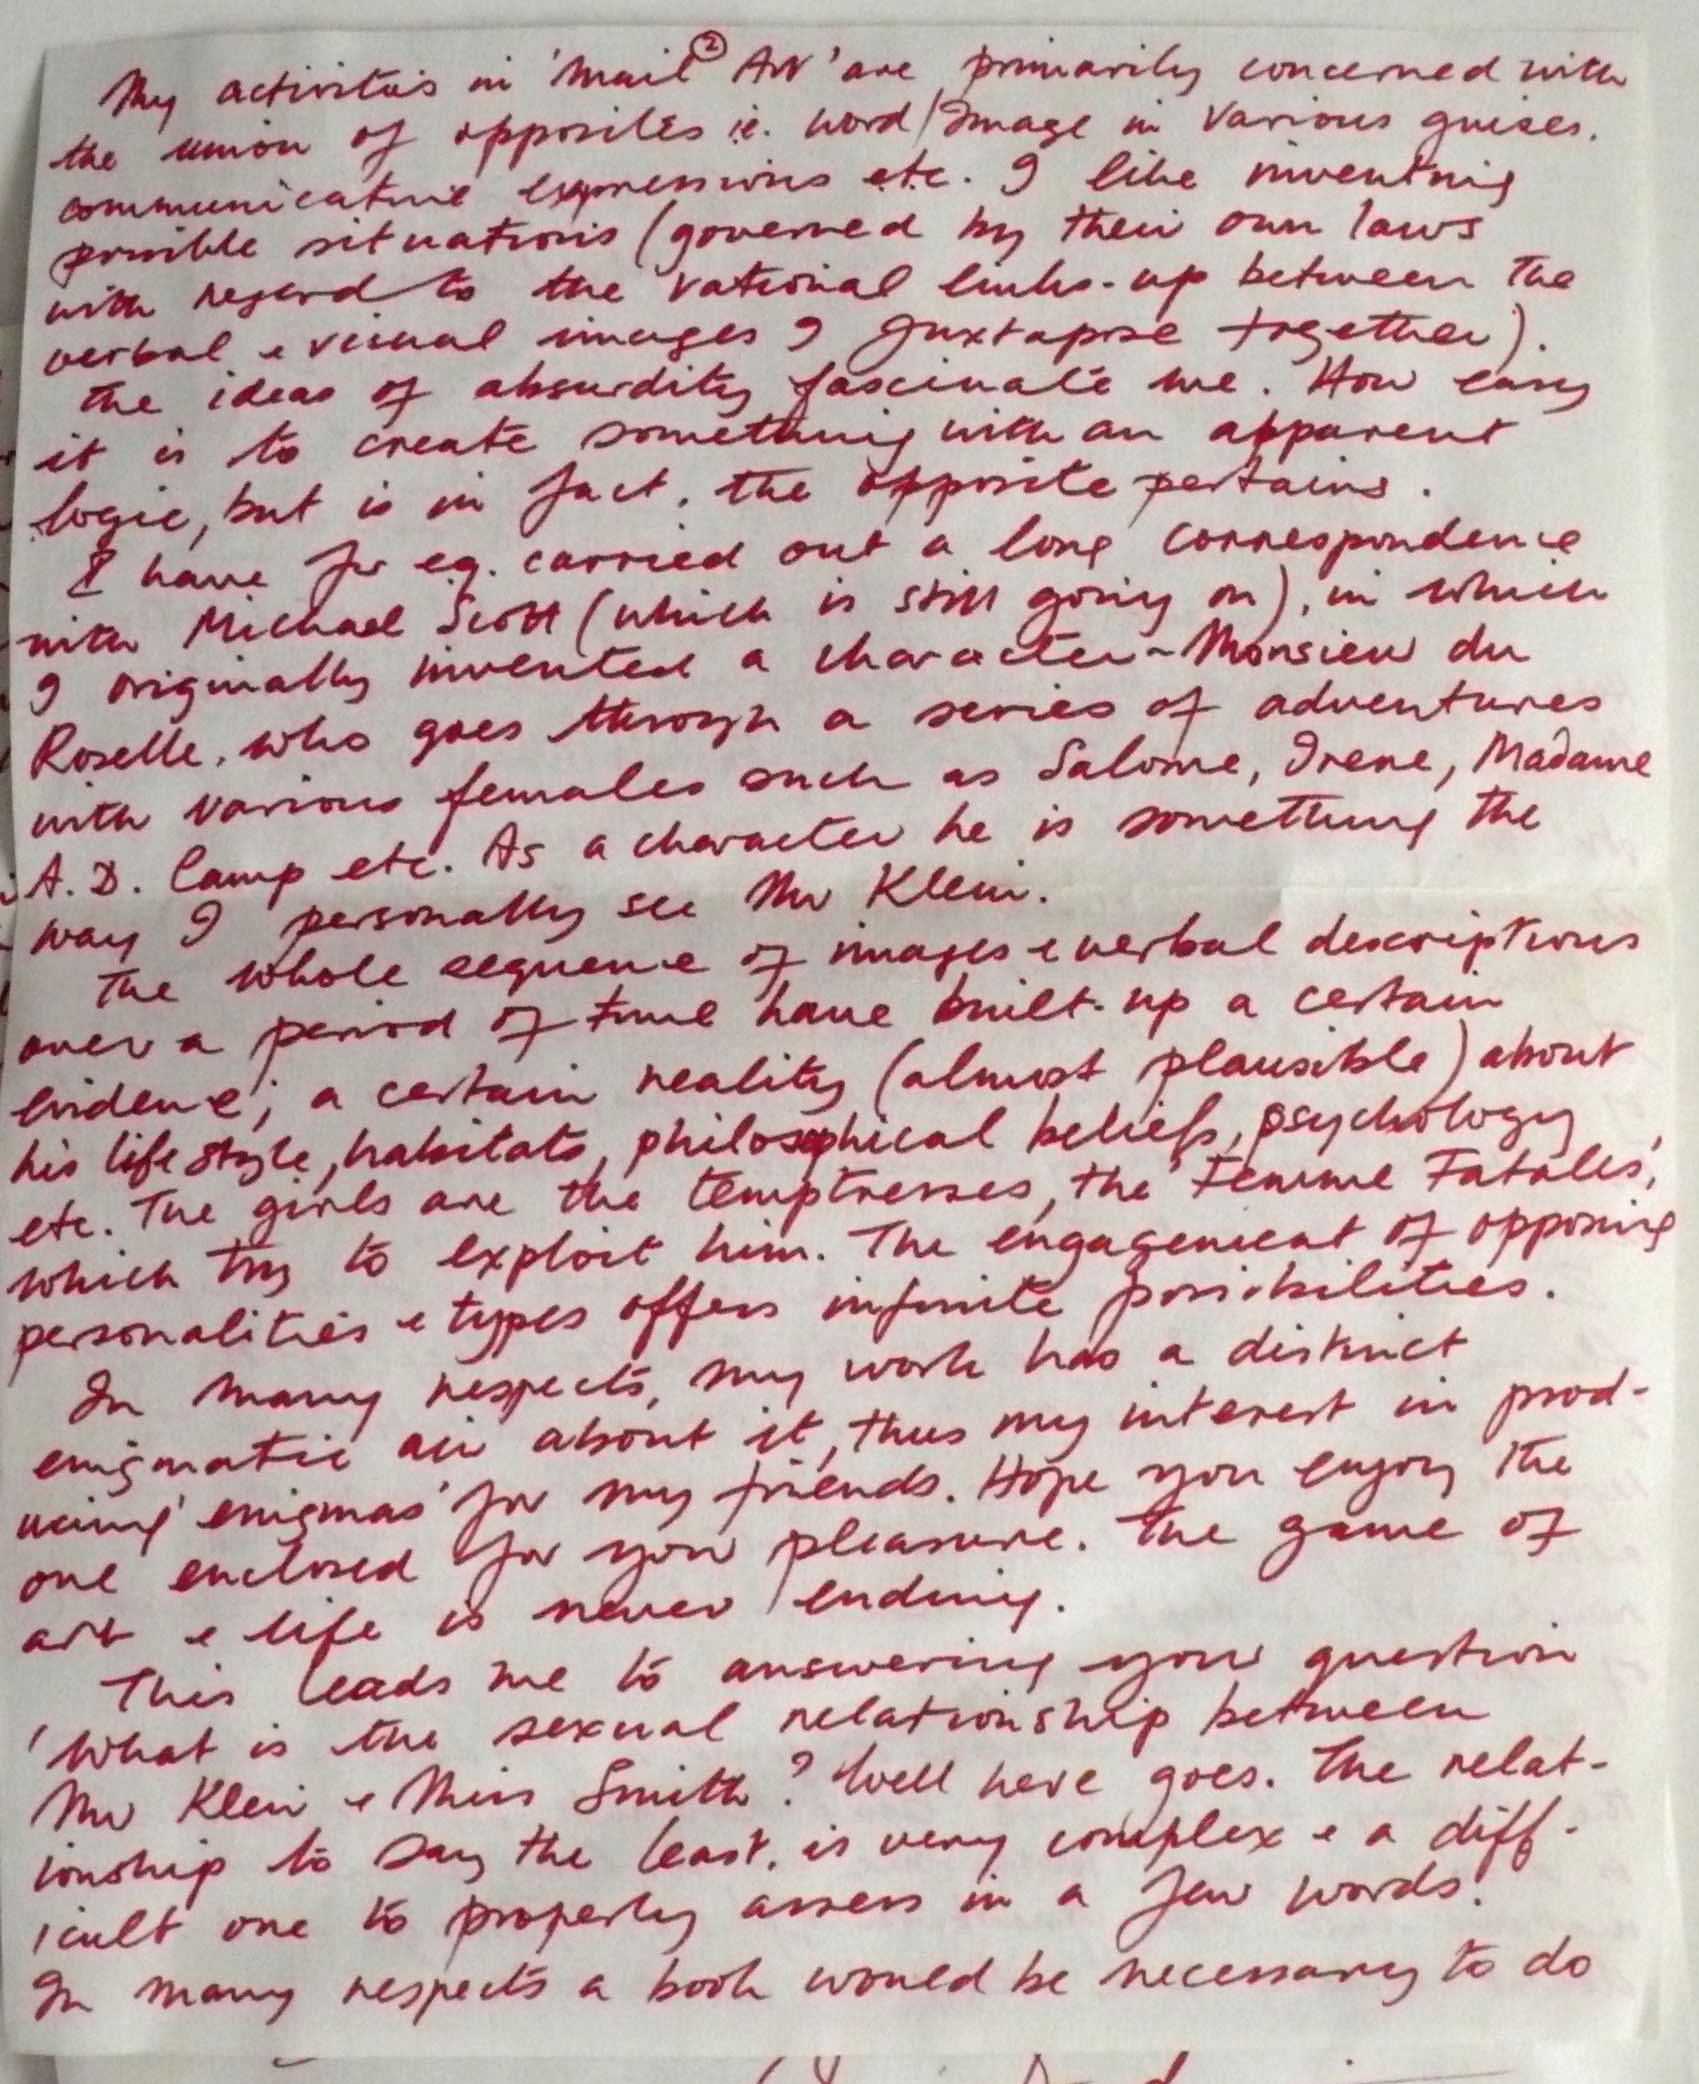 ②
My activities in 'Mail Art' are primarily concerned with
the union of opposites i.e. word/Image in various guises.
communicative expressions etc. I like inventing
possible situations (governed by their own laws
with regard to the rational links-up between the
verbal & visual images I juxtapose together).
The ideas of absurdity fascinate me. How easy
it is to create something with an apparent
logic, but is in fact, the opposite pertains.
I have for eg. carried out a long correspondence
with Michael Scott (which is still going on), in which
I originally invented a character - Monsieur du
Roselle, who goes through a series of adventures
with various females such as Salome, Irene, Madame
A.D. Camp etc. As a character he is something the
way I personally see Mr Klein.
The whole sequence of images & verbal descriptions
over a period of time have built-up a certain
evidence; a certain reality (almost plausible) about
his life style, habitats, philosophical beliefs, psychology
etc. The girls are the temptresses, the 'Femme Fatales',
which try to exploit him. The engagement of opposing
personalities & types offers infinite possibilities.
In many respects, my work has a distinct
enigmatic air about it, thus my interest in prod-
ucing 'enigmas' for my friends. Hope you enjoy the
one enclosed for your pleasure. The game of
art & life is never ending.
This leads me to answering your question
'What is the sexual relationship between
Mr Klein & Miss Smith? Well here goes. The relat-
ionship to say the least, is very complex & a diff-
icult one to properly assess in a few words!
In many respects a book would be necessary to do